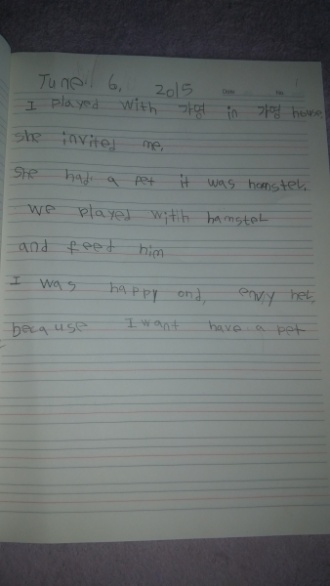 June. 6, 2015
I played with 가영 in 가영 house
she invited me.
She had a pet it was hamster.
we played with hamster
and feed him
I was happy and, envy her,
because I want have a pet